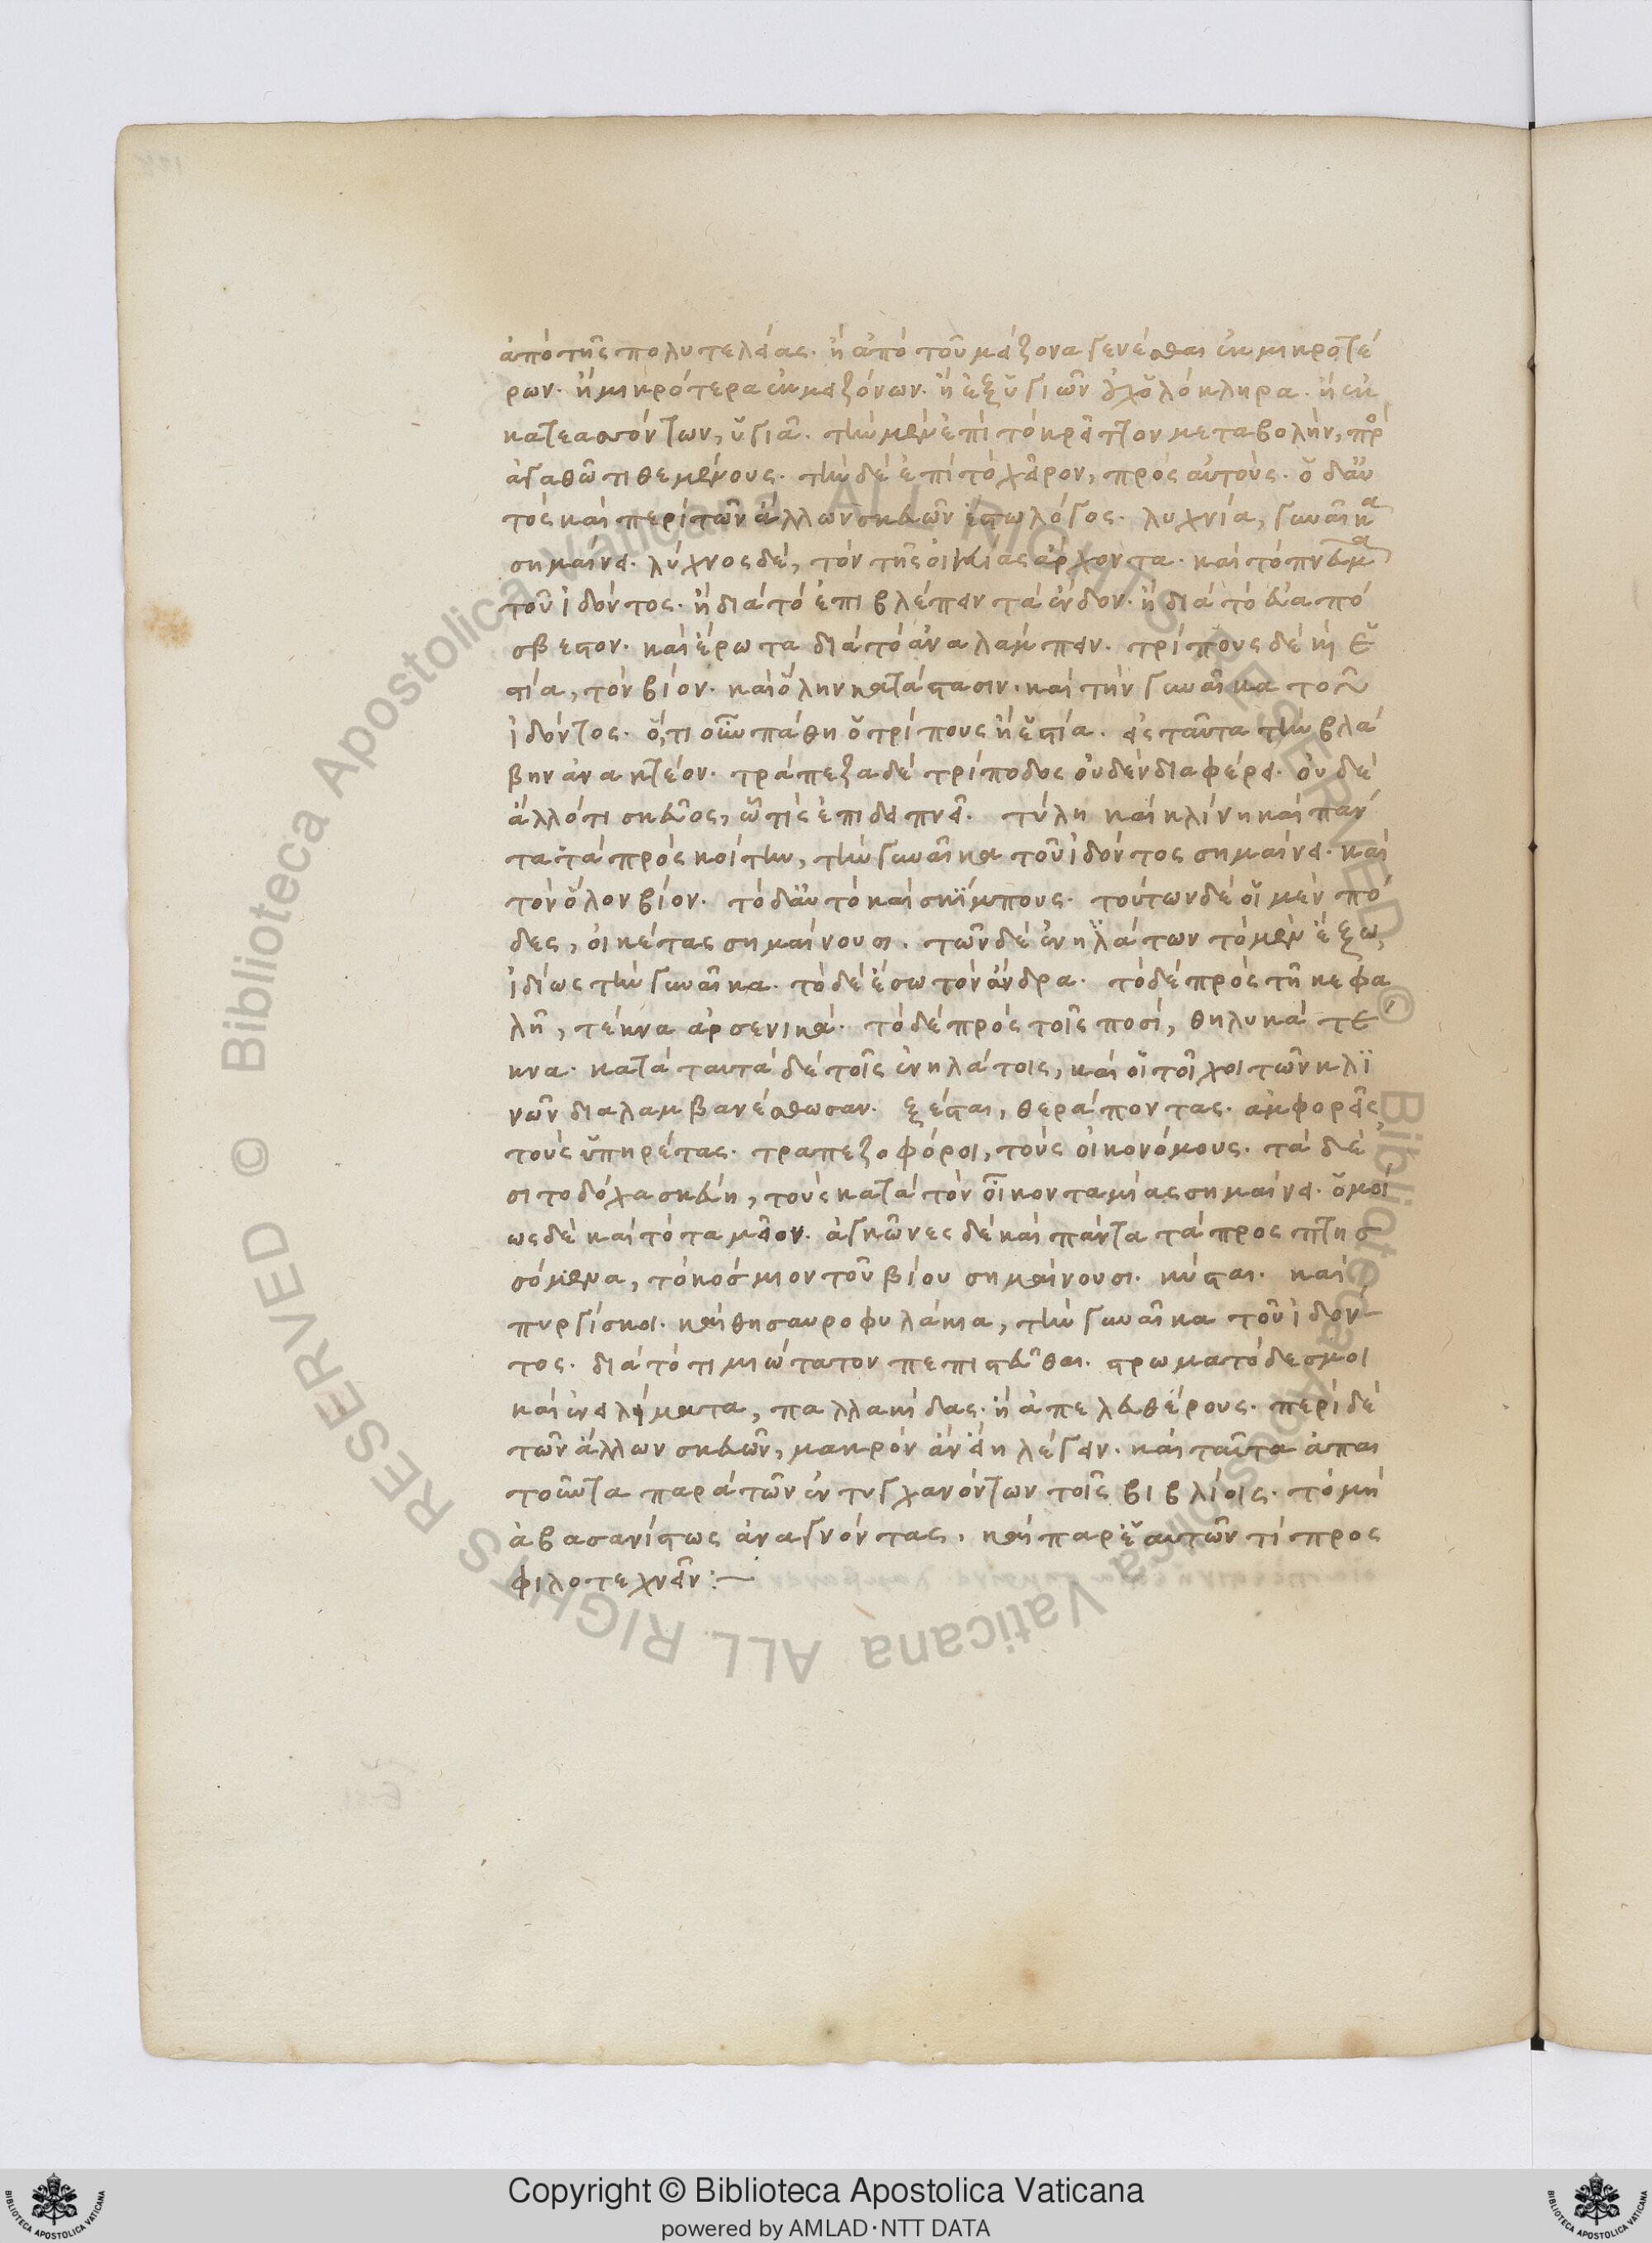 ἀπὸ τῆς πολυτελείας. ἢ ἀπὸ τοῦ μείζονα γενέσθαι ἐκ μικροτέ
ρων. ἢ μικρότερα ἐκ μειζόνων. ἢ ἐξ ὑγιῶν οὐχ ὁλόκληρα. ἢ ἐκ
κατεαγότων, ὑγιᾶ. τὴν μὲν ἐπὶ τὸ κρεῖττον μεταβολὴν, πρ
ἀγαθῶ τιθεμένους. τὴν δὲ ἐπὶ τὸ χεῖρον, πρὸς αὐτοὺς. ὁ δ' αὐ
τὸς καὶ περὶ τῶν ἄλλων σκευῶν ἔστω λόγος. λυχνία, γυναῖκα
σημαίνει. λύχνος δὲ, τὸν τῆς οἰκίας ἄρχοντα. καὶ τὸ πνεῦμα
τοῦ ἰδόντος. ἢ διὰ τὸ ἐπιβλέπειν τὰ ἔνδον. ἢ διὰ τὸ εὐαπό
σβεστον. καὶ ἔρωτα διὰ τὸ ἀναλάμπειν. τρίπους δὲ καὶ ἑ
στία, τὸν βίον. καὶ ὅλην κατάστασιν. καὶ τὴν γυναῖκα τοῦ
ἰδόντος. ὅ,τι οὖν πάθη ὁ τρίπους ἢ ἑστία. εἰς ταῦτα τὴν βλά
βην ἀνακτέον. τράπεζα δὲ τρίποδος οὐδὲν διαφέρει. οὐδὲ
ἄλλό τι σκεῦος, ὧ τίς ἐπιδειπνεῖ. τύλη καὶ κλίνη καὶ πάν
τα τὰ πρὸς κοίτην, τὴν γυναῖκα τοῦ ἰδόντος σημαίνει. καὶ
τὸν ὅλον βίον. τὸ δ' αὐτὸ καὶ σκίμπους. τούτων δὲ οἱ μὲν πό
δες, οἰκέτας σημαίνουσι. τῶν δὲ ἐνηλάτων τὸ μὲν ἔξω,
ἰδίως τὴν γυναῖκα. τὸ δὲ ἔσω τὸν ἄνδρα. τὸ δὲ πρὸς τῆ κεφα
λῆ, τέκνα ἀρσενικά. τὸ δὲ πρὸς τοῖς ποσὶ, θηλυκὰ τέ
κνα. κατὰ ταυτὰ δὲ τοῖς ἐνηλάτοις, καὶ οἱ τοῖχοι τῶν κλι
νῶν διαλαμβανέσθωσαν. ξέσται, θεράποντας. ἀμφορεῖς
τοὺς ὑπηρέτας. τραπεζοφόροι, τοὺς οἰκονόμους. τὰ δὲ
σιτοδόχα σκεύη, τοὺς κατὰ τὸν οἶκον ταμίας σημαίνει. ὁμοί
ως δὲ καὶ τὸ ταμεῖον. ἀγκῶνες δὲ καὶ πάντα τὰ προσπτησ
σόμενα, τὸ κόσμιον τοῦ βίου σημαίνουσι. κύσται. καὶ
πυργίσκοι. καὶ θησαυροφυλάκια, τὴν γυναῖκα τοῦ ἰδόν
τος. διὰ τὸ τιμιώτατον πεπιστεῦσθαι. στρωματόδεσμοι
καὶ ἐνειλήματα, παλλακίδας. ἢ ἀπελευθέρους. περὶ δὲ
τῶν ἄλλων σκευῶν, μακρὸν ἂν εἴη λέγειν. καὶ ταῦτα ἀπαι
τοῦντα παρὰ τῶν ἐντυγχανόντων τοῖς βιβλίοις. τὸ μὴ
ἀβασανίστως ἀναγνόντας, καὶ παρ' ἑαυτῶν τι προς
φιλοτεχνεῖν:—
Copyright © Biblioteca Apostolica Vaticana
powered by AMLAD·NTT DATA
© Biblioteca Apostolica Vaticana ALL RIGHTS RESERVED © Biblioteca Apostolica Vaticana ALL RIGHTS RESERVED